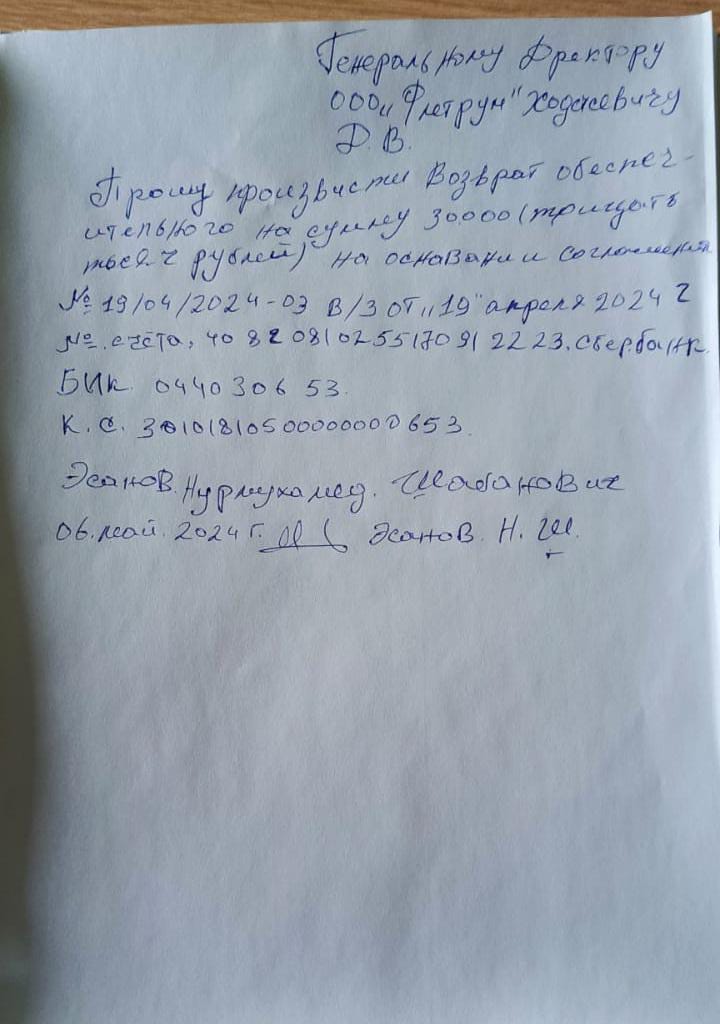 Генеральному Дректору
ООО „Флетрум" Ходасевичу
Д. В.
Прошу произвисти Возврат обеспеч-
ительного на сумму 30000 (тридцать
тысяч рублей) на основании соглашения
№ 19/04/2024-ОЭ В/З ОТ „19" апреля 2024 г
№ счёта, 40820810255170912223. Сбербанк.
БИК. 044030653.
К. С. 30101810500000000653.
Эсанов. Нурмухамед. Шабанович
06. май. 2024 г. Эсанов. Н. Ш.